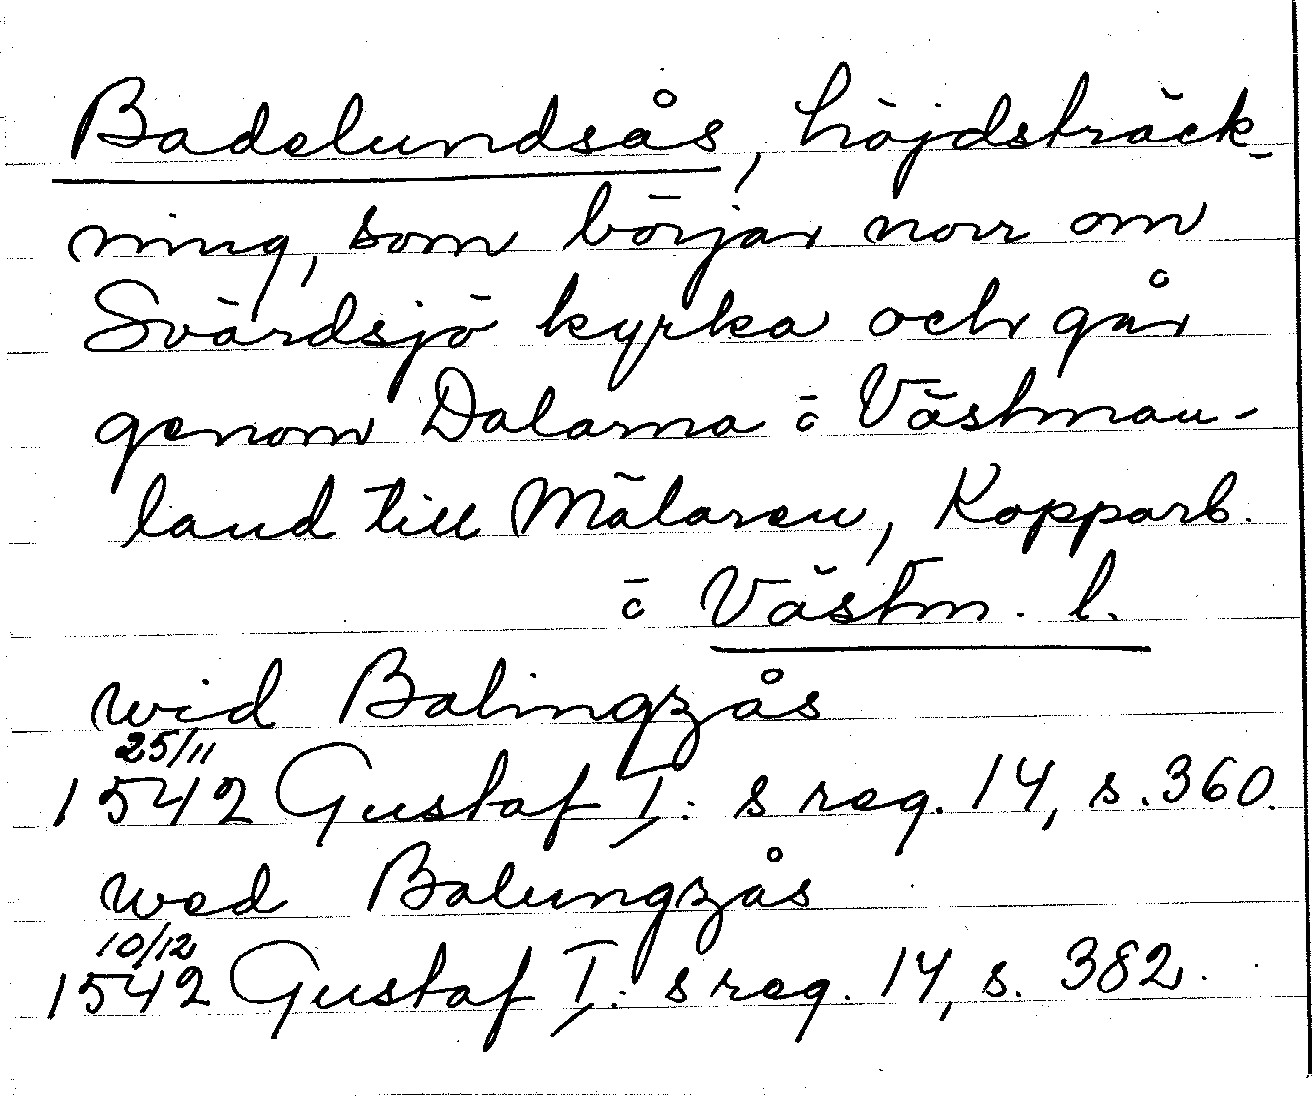 Badelundsås, höjdsträck-
ning, som börjar norr om
Svärdsjö kyrka och går
genom Dalarna o Västman-
land till Mälaren, Kopparb.
o Västm. l.
wid Balingzås
25/11
1542 Gustaf I: s reg. 14, s. 360.
wed Balungzås
10/12
1542 Gustaf I: s reg. 14, s. 382.